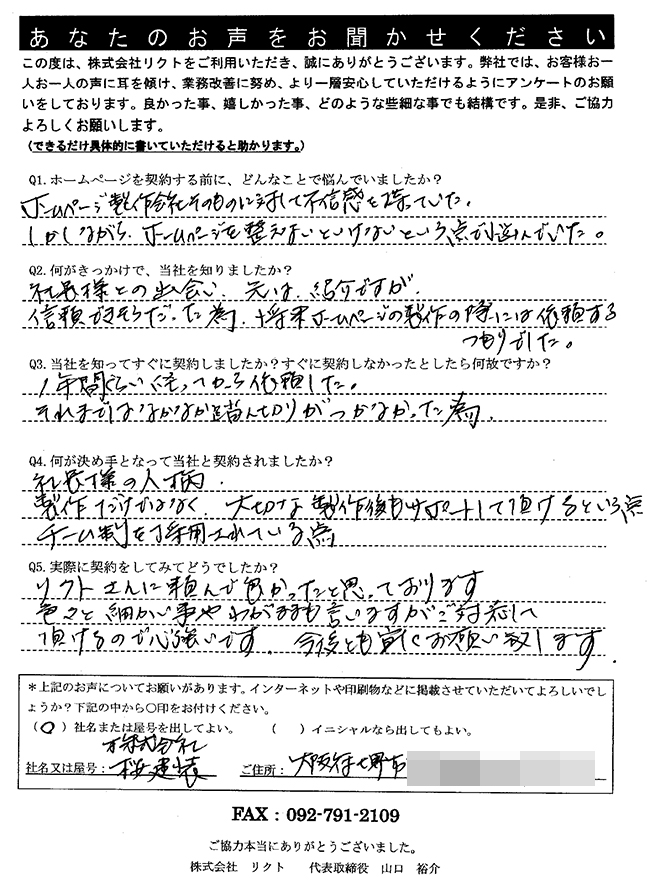 あなたのお声をお聞かせください
この度は、株式会社リクトをご利用いただき、誠にありがとうございます。弊社では、お客様お一
人お一人の声に耳を傾け、業務改善に努め、より一層安心していただけるようにアンケートのお願
いをしております。良かった事、嬉しかった事、どのような些細な事でも結構です。是非、ご協力
よろしくお願いします。
(できるだけ具体的に書いていただけると助かります。)
Q1.ホームページを契約する前に、どんなことで悩んでいましたか？
ホームページ製作会社そのものに対して不信感を持っていた。
しかしながら、ホームページを整えないといけないという点が悩んでいた。
Q2.何がきっかけで、当社を知りましたか？
社長様との出会い、元は、紹介ですが、
信頼できそうだった為、将来ホームページの製作の際には依頼する
つもりでした。
Q3.当社を知ってすぐに契約しましたか？すぐに契約しなかったとしたら何故ですか？
1年間ぐらい経ってから依頼した。
それまではなかなか踏ん切りがつかなかった為。
Q4.何が決め手となって当社と契約されましたか？
社長様の人柄。
製作だけでなく、大切な製作後もサポートして頂けるという点
チーム制を採用されている点
Q5.実際に契約をしてみてどうでしたか？
リクトさんに頼んで良かったと思っております
色々と細かい事やわがままも言いますがご対応して
頂けるので心強いです。今後とも宜しくお願い致します。
＊上記のお声についてお願いがあります。インターネットや印刷物などに掲載させていただいてよろしいでし
ょうか？下記の中から〇印をお付けください。
(〇) 社名または屋号を出してよい。 ( ) イニシャルなら出してもよい。
株式会社
社名又は屋号: 桜建装 ご住所: 大阪府堺市
FAX：092-791-2109
ご協力本当にありがとうございました。
株式会社 リクト 代表取締役 山口 裕介